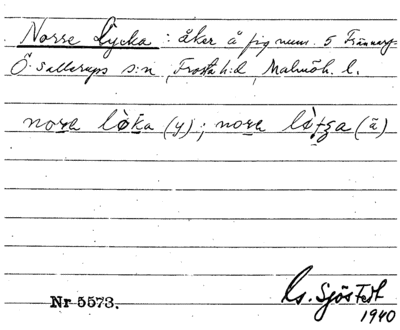 Norre Lycka : åker å fig num. 5
Ö. Sallerups s:n, Frosta h:d, Malmöh. l.
nora løka (y); nora (ä)
Nr 5573.
Is. Sjöstedt
1940